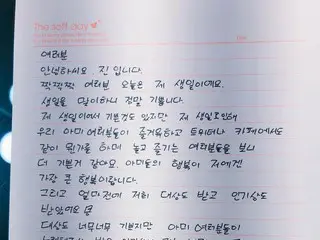 The soft day
Date.
여러분
안녕하세요. 진 입니다.
짝짝짝 여러분 오늘은 제 생일이에요.
생일을 맞이하니 정말 기쁩니다.
제 생일이어서 기쁜것도 있지만 제 생일로인해
우리 아미 여러분들이 즐거워하고 트위터나 카페에서도
같이 뭔가를 하며 놀고 즐기는 여러분들을 보니
더 기쁜거 같아요. 아미들의 행복이 저에겐
가장 큰 행복이랍니다.
그리고 얼마전에 저희 대상도 받고 인기상도
받았어요
대상도 너무너무 기쁘지만 아미 여러분들이